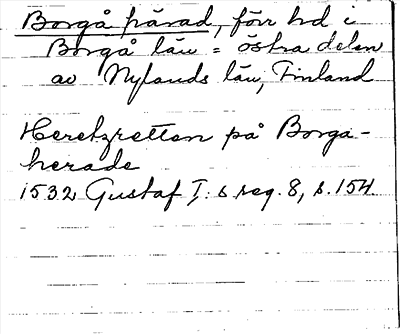 Borgå härad, förr hd i
Borgå län = östra delen
av Nylands län, Finland
Heretzretten på Borga-
herade
1532 Gustaf I:s reg. 8, s. 154.